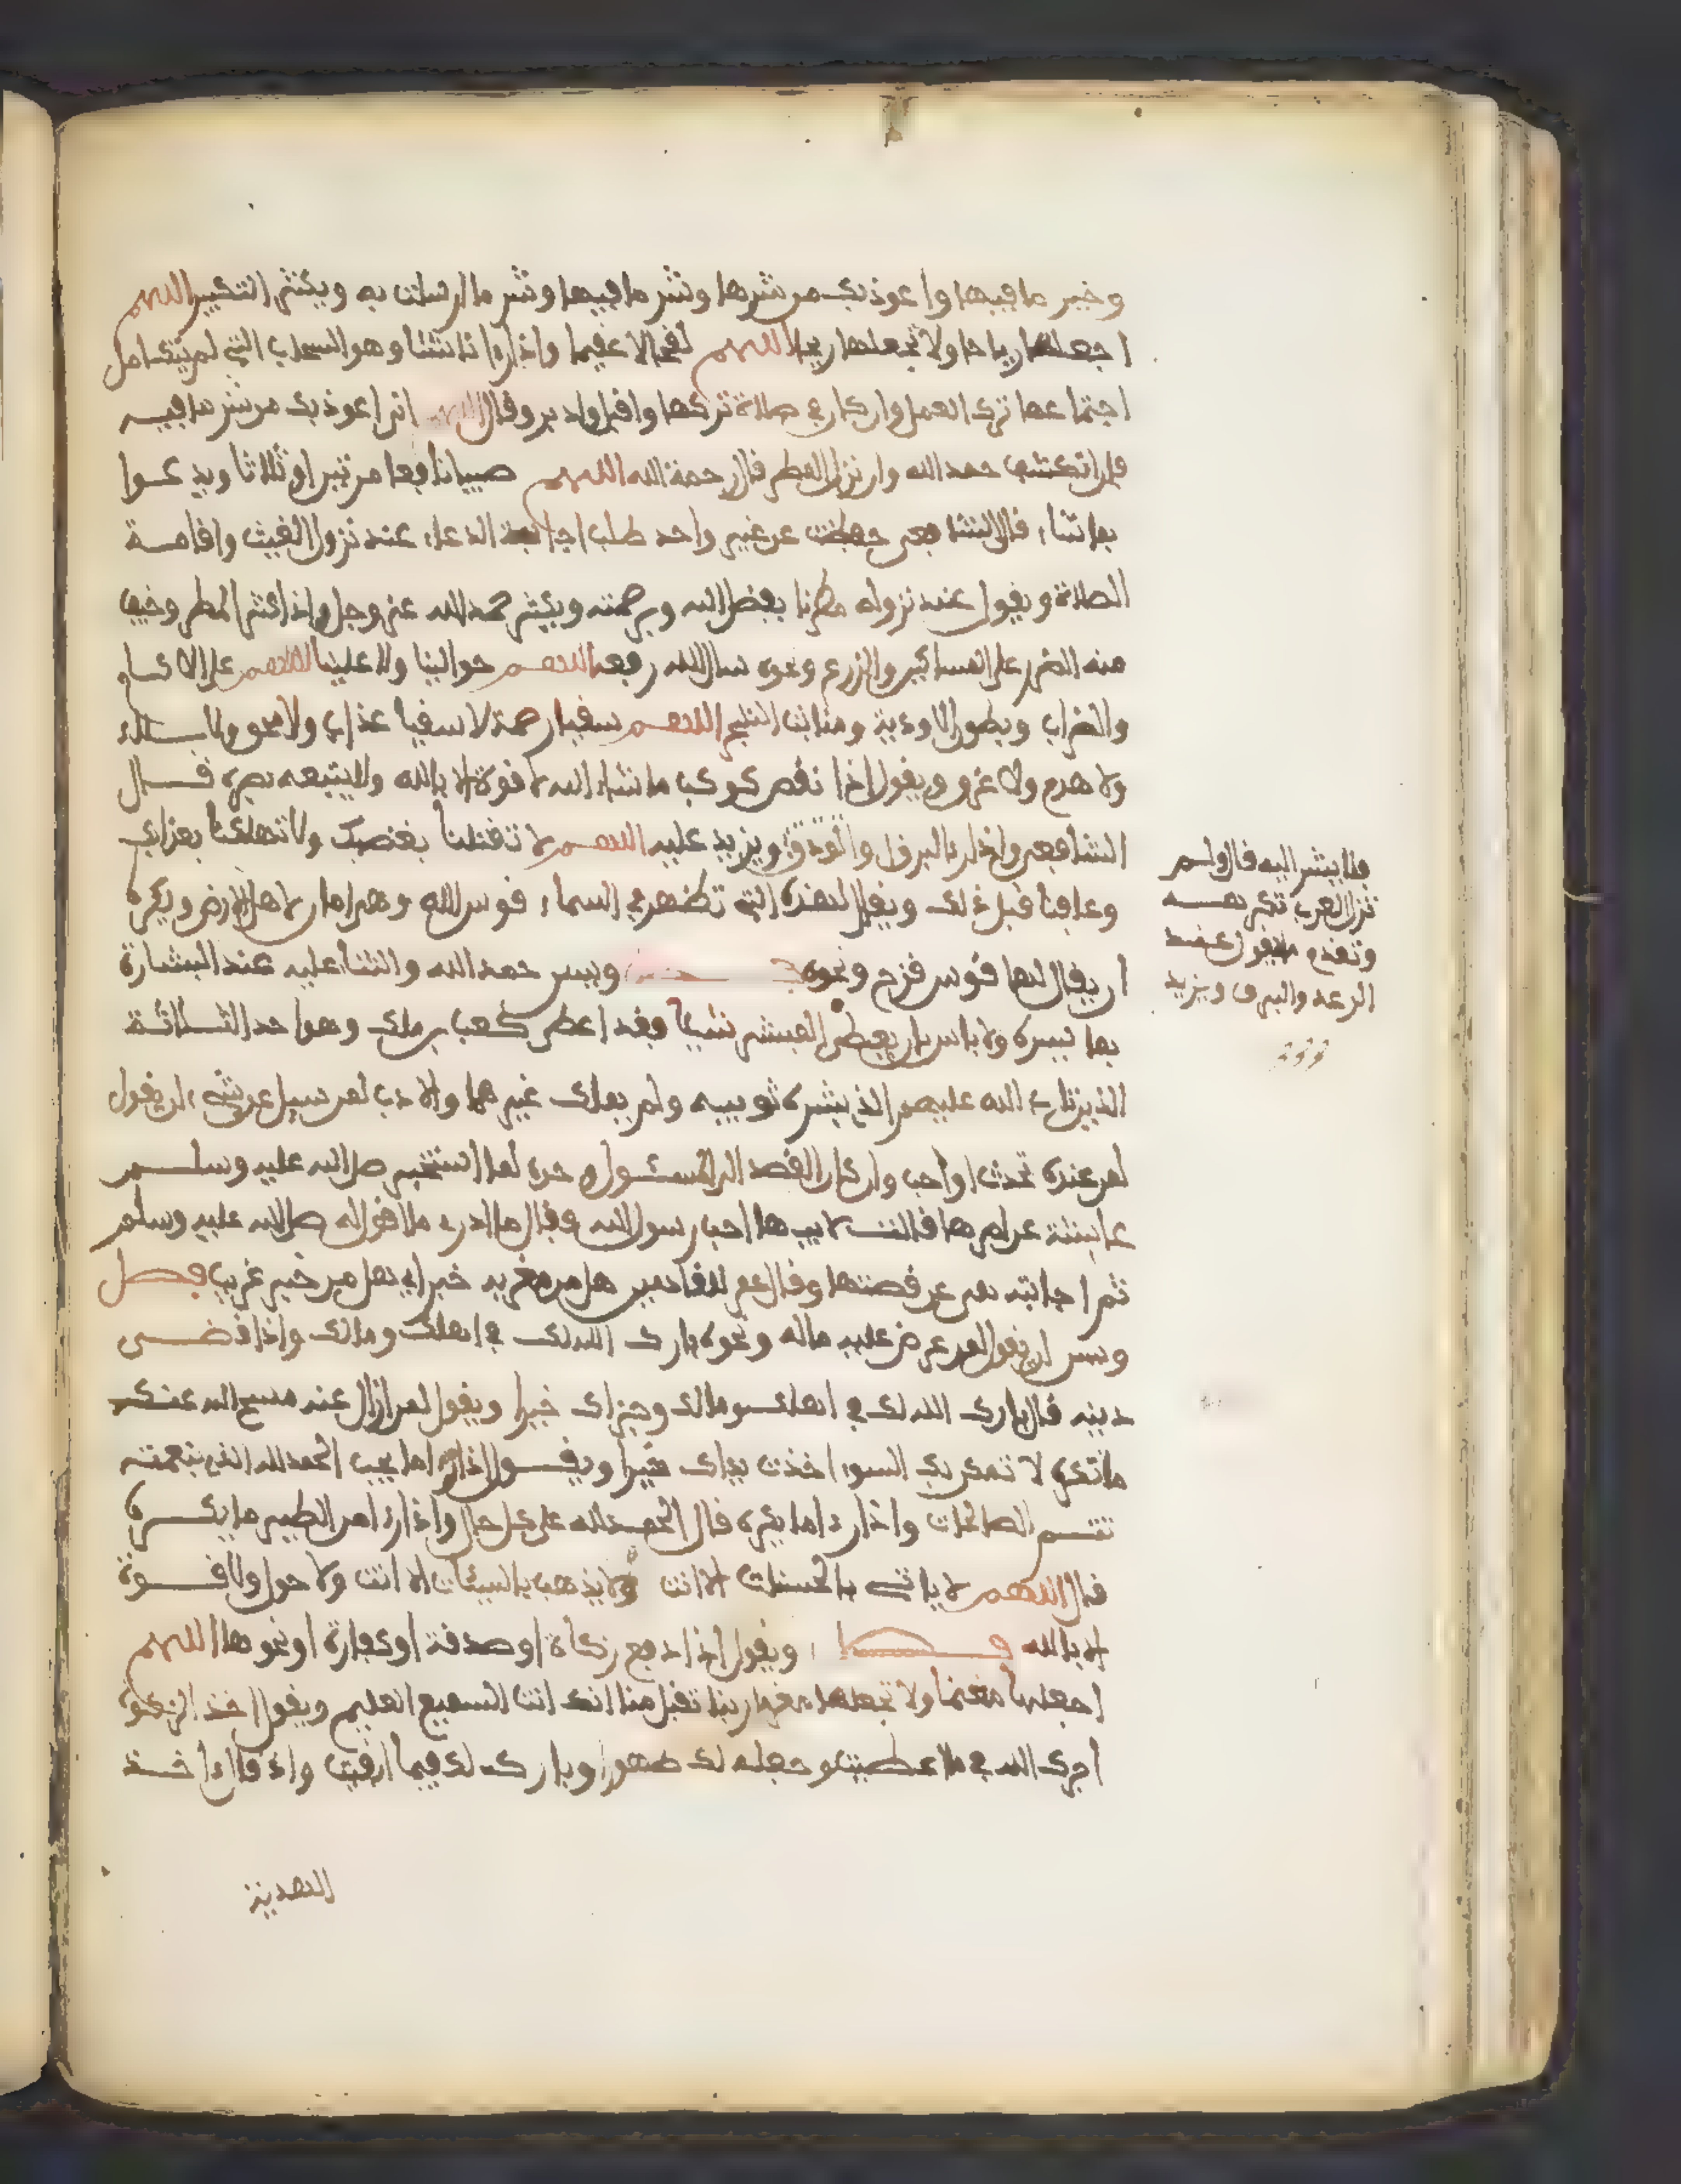 وخير ما فيها واعوذ بك من شرها وشر ما فيها وشر ما ارسلت به ويكثر التكبير اللهم
اجعلها رياحا ولا تجعلها ريحا اللهم لقحا لا عقيما واذا راا ناشئا وهو السحاب التي لم يتكامل
اجتماعها ترك العمل وان كان في صلاة تركها واقبل وادبر وقال اللهم اني اعوذ بك من شر ما فيه
فان انكشف حمد الله وان نزل المطر قال رحمة الله اللهم صيبا نافعا مرتين او ثلاثا ويدعوا
بما شاء قال الشافعي حفظت عن غير واحد طلب اجابة الدعاء عند نزول الغيث واقامة
الصلاة ويقول عند نزوله مطرنا بفضل الله وبرحمته ويكثر حمد الله عز وجل واذا كثر المطر وخيف
منه الضرر على المساكين والزرع ونحوه سال الله رفعه اللهم حوالينا ولا علينا اللهم على الاكام
والضراب وبطون الاودية ومنابت الشجر اللهم سقيا رحمة لا سقيا عذاب ولا محو ولا بلاء
ولا هدم ولا غرو ويقول اذا نقص كوكب ما شاء الله لا قوة الا بالله ولا يتبعه بصره قال
الشافعي واذا را البرق والودق ويزيد عليه اللهم لا تقتلنا بغضبك ولا تهلكنا بعذابك
وعافنا قبل ذلك ويقال لهذه التي تظهر في السماء قوس الله وهي امان لاهل الارض ويكره
ان يقال لها قوس قزح ونحوه ويسن حمد الله والثناء عليه عند البشارة
بما يسره ولا باس بان يعطي المبشر شيئا فقد اعطى كعب بن ملك وهو احد الثلاثة
الذين تاب الله عليهم الذي بشره ثوبيه ولم يملك غيرهما والادب لمن سيل عن شيء ان يقول
لمن عنده تحدث او اجب وان كان القصد الى المسئول وحده لما استخبر صلى الله عليه وسلم
عايشة عن امرها قالت لابيها اجب رسول الله فقال ما ادري ما اقول له صلى الله عليه وسلم
ثم اجابته هي عن قصتها وقال عمر للقادمين هل من مغربه خبر اي هل من خبر غريب فصل
وسن ان يقول لمن عرض عليه ماله ونحوه بارك الله لك في اهلك ومالك واذا قضى
دينه قال بارك الله لك في اهلك ومالك وجزاك خيرا ويقول لمن ازال عنه مسح الله عنك
ما تكره لا تمكن بك السوء اخذت يداك خيرا ويقول اذا را ما يحب الحمد لله الذي بنعمته
تتم الصالحات واذا را ما يكره قال الحمد لله على كل حال واذا را من الطير ما يكره
قال اللهم لا ياتي بالحسنات الا انت ولا يذهب بالسيئات الا انت ولا حول ولا قوة
الا بالله ويقول اذا دفع زكاة او صدقة او كفارة او نحوها اللهم
اجعلها مغنما ولا تجعلها مغرما ربنا تقبل منا انك انت السميع العليم ويقول اخذ الزكوة
اجرك الله في ما اعطيت وجعله لك طهورا وبارك لك فيما ابقيت واذ قال اخذ
فلا يشر اليه قال ولم
تزل العرب تكرهه
وتقدم ما يقول عند
الرعد والبرق ويزيد
الهدية